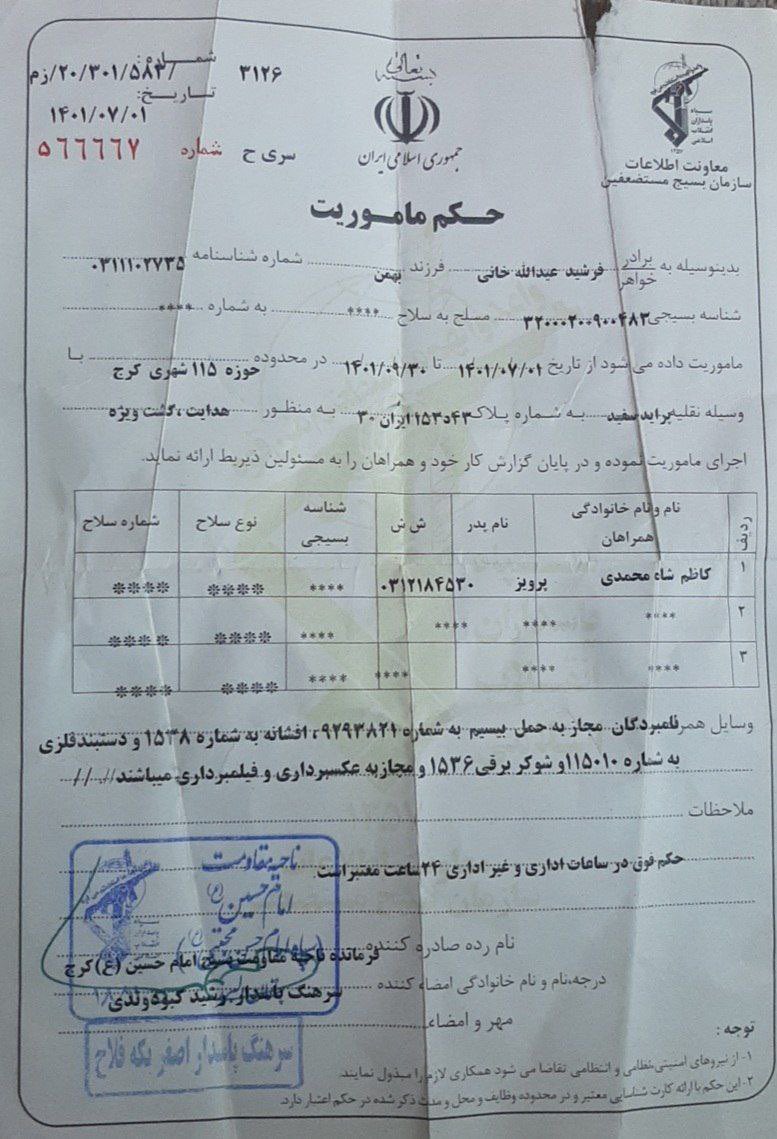 بسمه تعالی
جمهوری اسلامی ایران
سپاه پاسداران انقلاب اسلامی
معاونت اطلاعات
سازمان بسیج مستضعفین
شماره: ۲۰/۳۰۱/۵۸۳/زم
۳۱۲۶
تاریخ: ۱۴۰۱/۰۷/۰۱
سری ح شماره ۵۶۶۶۶۷
حکم ماموریت
بدینوسیله به برادر/خواهر فرشید عبدالله خانی فرزند بهمن شماره شناسنامه ۰۳۱۱۱۰۲۷۳۵
شناسه بسیجی ۳۲۰۰۰۲۰۰۹۰۰۴۸۳ مسلح به سلاح **** به شماره ****
ماموریت داده می شود از تاریخ ۱۴۰۱/۰۷/۰۱ تا ۱۴۰۱/۰۹/۳۰ در محدوده حوزه ۱۱۵ شهری کرج با
وسیله نقلیه پراید سفید به شماره پلاک ۴۳د۱۵۳ ایران ۳۰ به منظور هدایت ، گشت ویژه
اجرای ماموریت نموده و در پایان گزارش کار خود و همراهان را به مسئولین ذیربط ارائه نماید.
ردیف نام و نام خانوادگی همراهان نام پدر ش ش شناسه بسیجی نوع سلاح شماره سلاح
۱ کاظم شاه محمدی پرویز ۰۳۱۲۱۸۴۵۳۰ **** **** ****
۲ **** **** **** **** **** ****
۳ **** **** **** **** **** ****
وسایل همراه نامبردگان مجاز به حمل بیسیم به شماره ۹۲۹۳۸۲۱ ، افشانه به شماره ۱۵۳۸ و دستبند فلزی
به شماره ۱۱۵۰۱۰ و شوکر برقی ۱۵۳۶ و مجاز به عکسبرداری و فیلمبرداری میباشند //. //
ملاحظات
حکم فوق در ساعات اداری و غیر اداری ۲۴ ساعت معتبر است.
نام رده صادره کننده فرمانده ناحیه مقاومت بسیج امام حسین (ع) کرج
درجه، نام و نام خانوادگی امضاء کننده سرهنگ پاسدار رشید کبودوندی
مهر و امضاء
ناحیه مقاومت
امام حسین (ع)
سرهنگ پاسدار اصغر یکه فلاح
توجه :
۱- از نیروهای امنیتی، نظامی و انتظامی تقاضا می شود همکاری لازم را مبذول نمایند.
۲- این حکم با ارائه کارت شناسایی معتبر و در محدوده وظایف و محل و مدت ذکر شده در حکم اعتبار دارد.